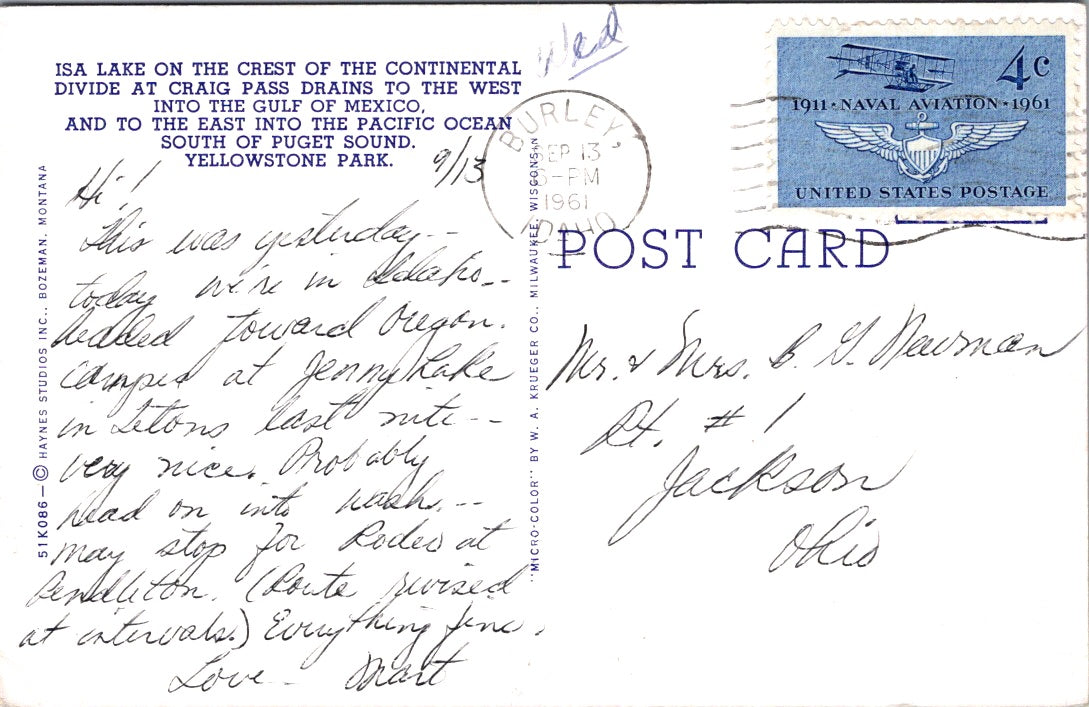 Wed
ISA LAKE ON THE CREST OF THE CONTINENTAL
DIVIDE AT CRAIG PASS DRAINS TO THE WEST
INTO THE GULF OF MEXICO,
AND TO THE EAST INTO THE PACIFIC OCEAN
SOUTH OF PUGET SOUND.
YELLOWSTONE PARK.
9/13
Hi!
This was yesterday--
today we're in Idaho--
headed toward Oregon.
Camped at Jenny Lake
in Tetons last nite--
very nice. Probably
head on into Wash.--
may stop for Rodeo at
Pendleton. (Route revised
at intervals.) Everything fine.
Love - Mart
51K086-© HAYNES STUDIOS INC., BOZEMAN, MONTANA
"MICRO-COLOR" BY W. A. KRUEGER CO., MILWAUKEE, WISCONSIN
BURLEY,
SEP 13
PM
1961
IDAHO
4c
1911 · NAVAL AVIATION · 1961
UNITED STATES POSTAGE
POST CARD
Mr. & Mrs. B. G. Newman
Rt. # 1
Jackson
Ohio